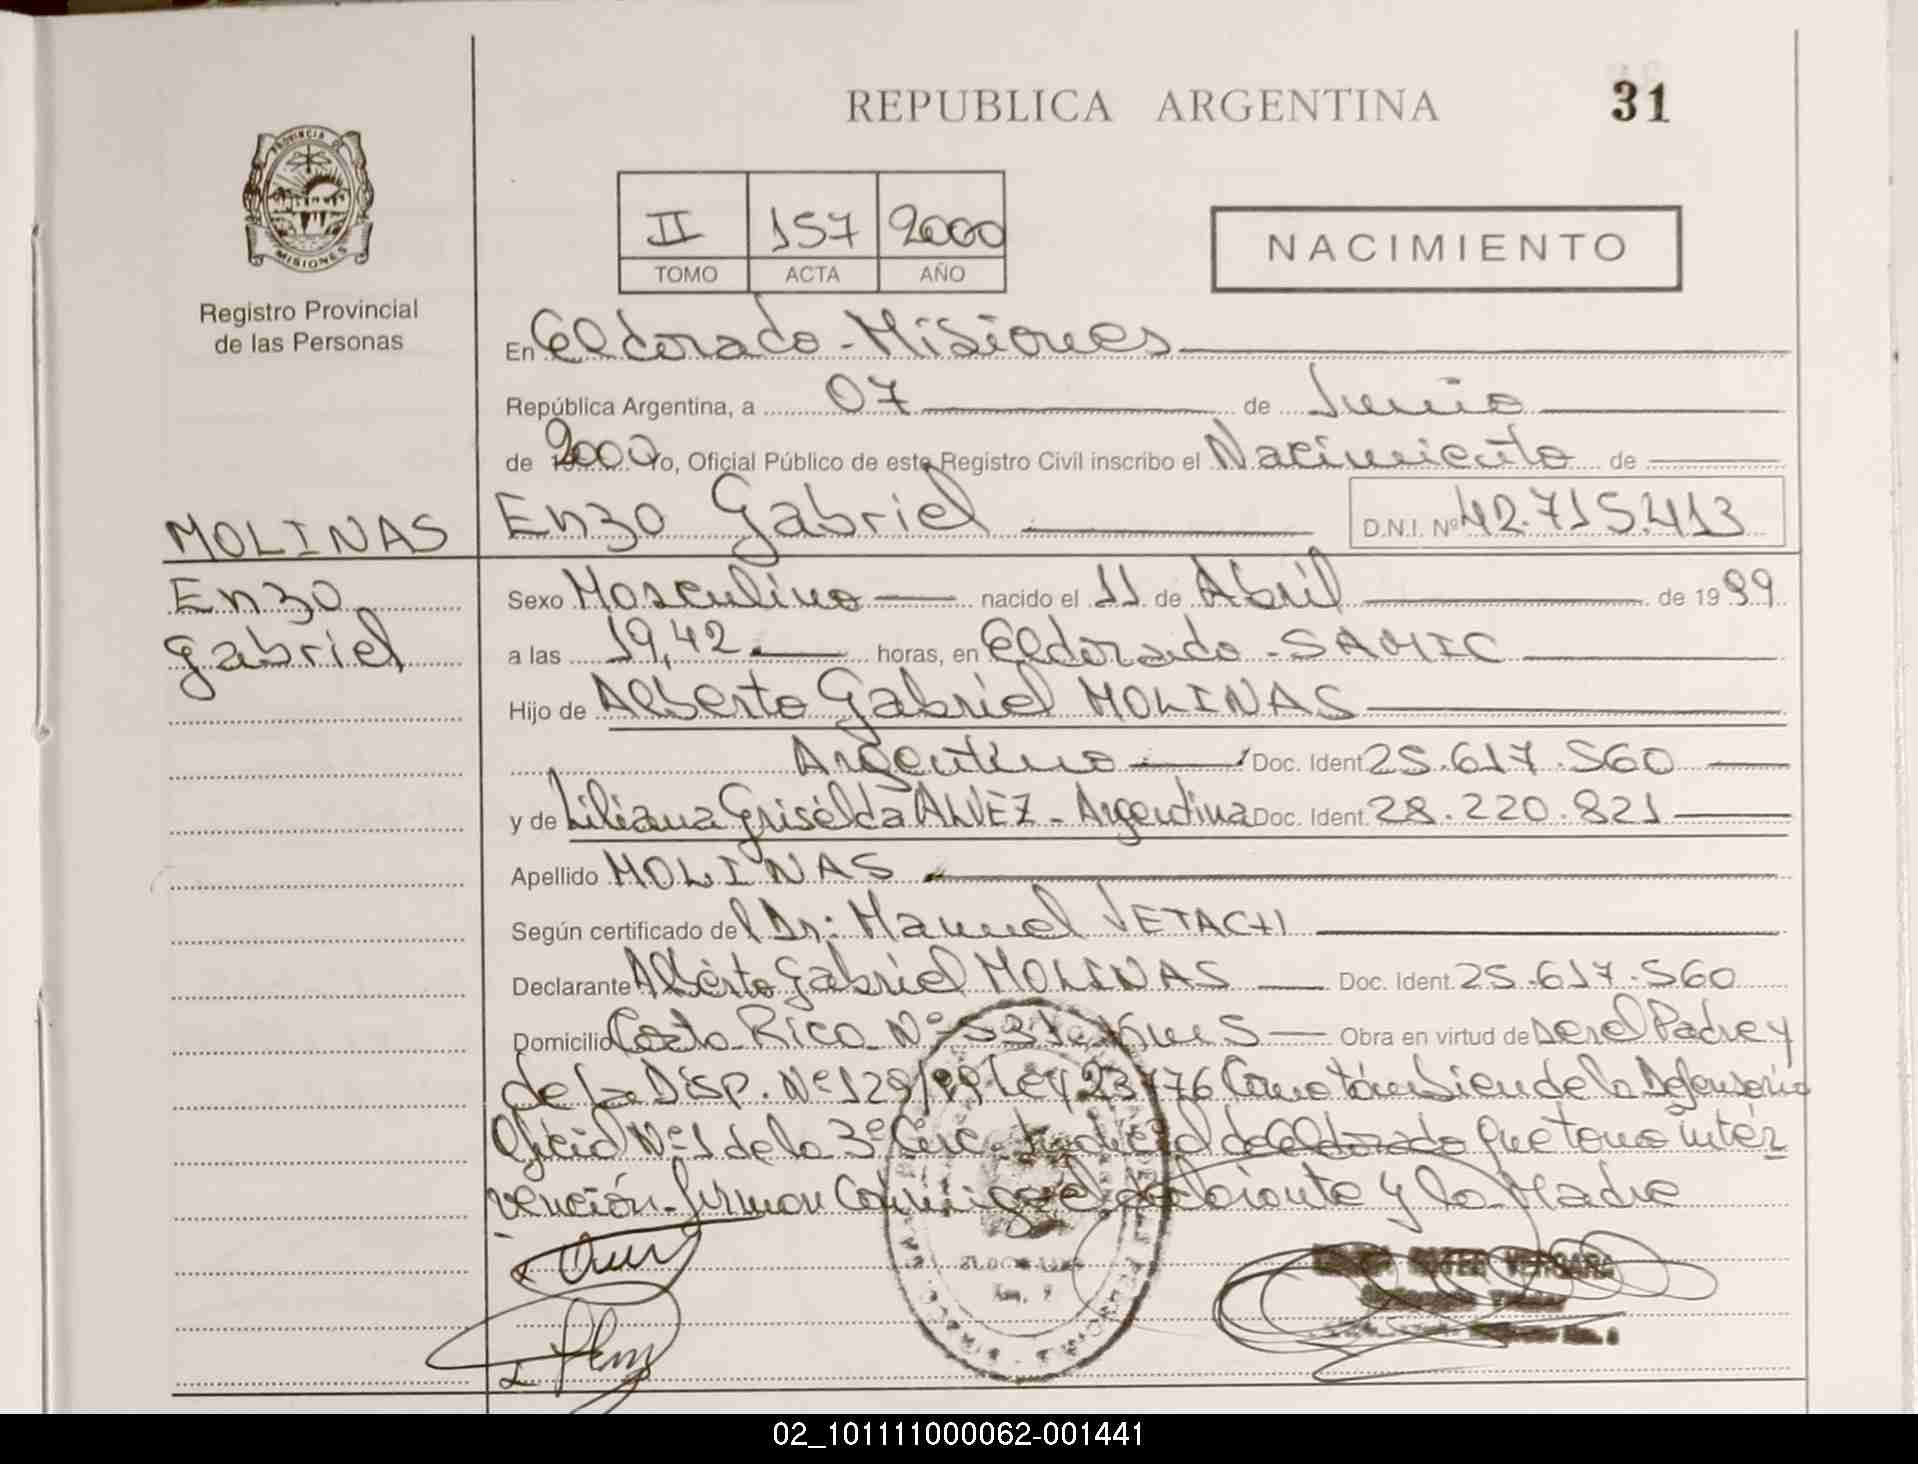 REPUBLICA ARGENTINA
31
PROVINCIA DE
MISIONES
Registro Provincial
de las Personas
II 157 2000
TOMO ACTA AÑO
NACIMIENTO
En Eldorado - Misiones
República Argentina, a 07 de Junio
de 2000 Yo, Oficial Público de este Registro Civil inscribo el Nacimiento de
MOLINAS
Enzo Gabriel D.N.I. Nº 42.715.413
Enzo
Gabriel
Sexo Masculino nacido el 11 de Abril de 1999
a las 19,42 horas, en Eldorado - SAMIC
Hijo de Alberto Gabriel MOLINAS
Argentino Doc. Ident. 25.617.560
y de Liliana Griselda ALVEZ - Argentina Doc. Ident. 28.220.821
Apellido MOLINAS
Según certificado del Dr: Manuel
Declarante Alberto Gabriel MOLINAS Doc. Ident. 25.617.560
Domicilio Costa Rica Nº Obra en virtud de ser el Padre y
de la Disp. Nº 129/99, Ley 23 Como también de la Defensoria
Oficial Nº 1 de la 3º Circ. Judicial de Eldorado que tomo inter
vención. firman Conmigo el declarante y la Madre
VERGARA
02_101111000062-001441